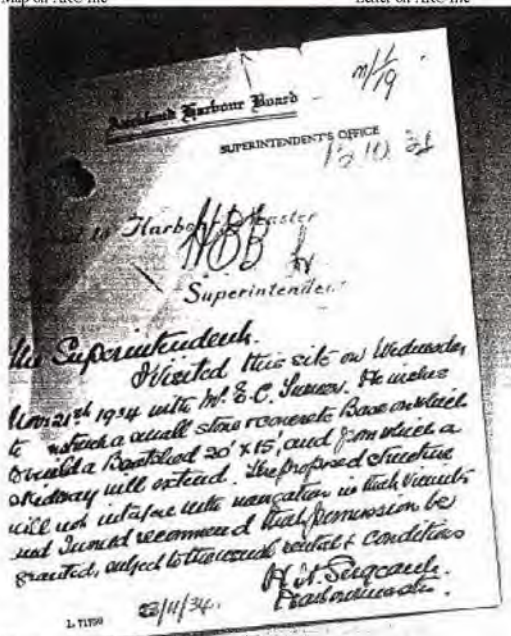 Map on ARC file Letter on ARC file
Auckland Harbour Board
m/1/19
SUPERINTENDENT'S OFFICE
to Harbour Master
Superintendent
The Superintendent.
I Visited this site on Wednesday
Nov: 21st 1934 with Mr. E.C. He wishes
to a small stone & concrete Base on which
to build a Boatshed 20' x 15', and from which a
skidway will extend. The proposed structure
will not interfere with navigation in that vicinity
and I would recommend that permission be
granted, subject to the usual rental & conditions
H. H. Sergeant.
Harbourmaster.
23/11/34.